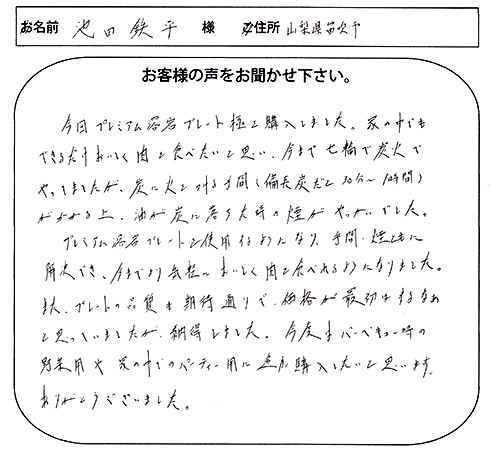 お名前 池田鉄平 様 ご住所 山梨県笛吹市
お客様の声をお聞かせ下さい。
今回プレミアム溶岩プレート極を購入しました。家の中でも
できるだけおいしく肉を食べたいと思い、今まで七輪で炭火で
やってましたが、炭に火をつける手間(備長炭だと30分〜1時間)
がかかる上、油が炭に落ちた時の煙がやっかいでした。
プレミアム溶岩プレートを使用するようになり、手間・煙ともに
解決でき、今までより気軽においしく肉を食べれるようになりました。
また、プレートの品質も期待通りで、価格が最初はするなぁ
と思っていましたが、納得しました。今度はバーベキュー時の
野菜用や家の中でのパーティー用に追加購入したいと思います。
ありがとうございました。